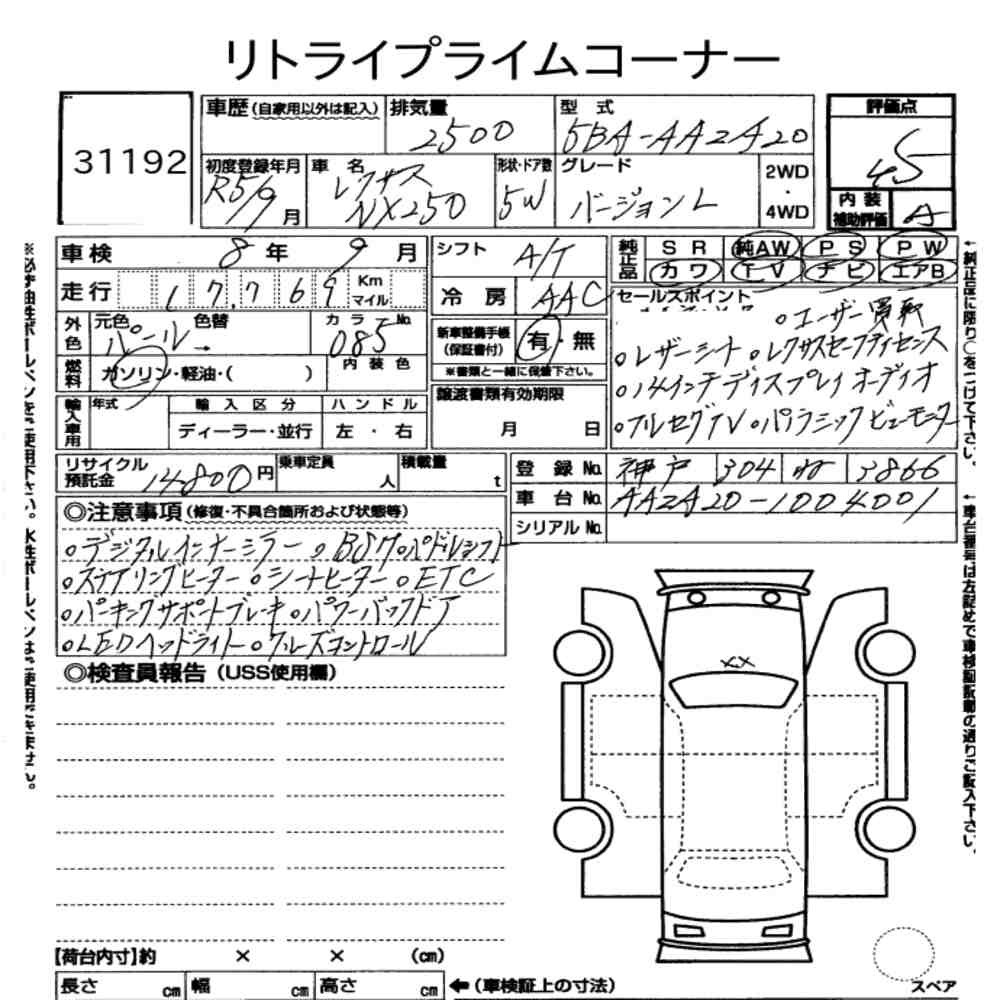 リトライプライムコーナー
31192
車歴(自家用以外は記入)
排気量
2500
型式
5BA-AAZA20
評価点
4.5
初度登録年月
R5/9月
車名
レクサス
NX250
形状・ドア数
5W
グレード
バージョンL
2WD
・
4WD
内装
補助評価
A
車検 8年 9月
走行 17,769 Km
マイル
外色
元色
パール
色替
→
カラーNo.
085
燃料
ガソリン・軽油・( )
内装色
輸入車用
年式
輸入区分
ディーラー・並行
ハンドル
左・右
シフト
A/T
冷房
AAC
新車整備手帳
(保証書付)
有・無
※書類と一緒に保管下さい。
譲渡書類有効期限
月 日
純正品
SR 純AW PS PW
カワ TV ナビ エアB
セールスポイント
○ユーザー買取
○レザーシート ○レクサスセーフティセンス
○14インチディスプレイオーディオ
○フルセグTV ○パノラミックビューモニター
リサイクル
預託金
14,800円
乗車定員
人
積載量
t
登録No. 神戸 304 ね 3866
車台No. AAZA20-1004001
シリアルNo.
◎注意事項(修復・不具合箇所および状態等)
○デジタルインナーミラー ○BSM ○パドルシフト
○ステアリングヒーター ○シートヒーター ○ETC
○パーキングサポートブレーキ ○パワーバックドア
○LEDヘッドライト ○クルーズコントロール
◎検査員報告(USS使用欄)
XX
【荷台内寸】約 × × (cm)
長さ cm 幅 cm 高さ cm
←(車検証上の寸法)
スペア
※必ず油性ボールペンをご使用下さい。水性ボールペンはご使用できません。
←純正品に限り○をつけて下さい。
←車台番号は左詰めで車検証記載の通りご記入下さい。